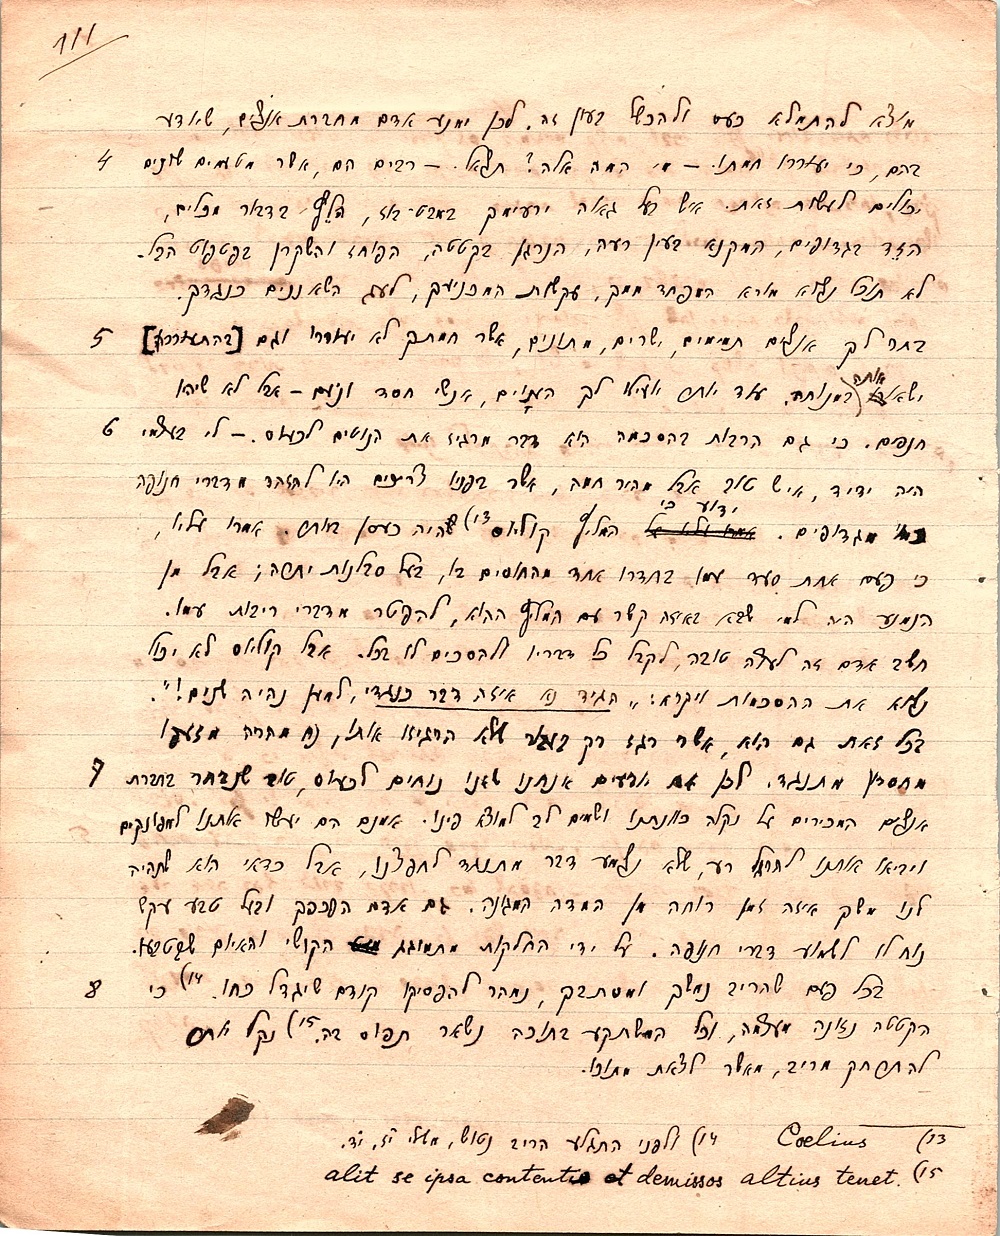 111
מוצא להתמלא כעס ולהכשל בעון זה. לכן ימנע אדם מחברת אנשים, שאדע
4 בהם, כי יעוררו חמתו. – מי המה אלה? תשאל. – רבים הם, אשר מטעמים שונים
יכולים לעשות זאת. איש בעל גאוה ירעימך במבט-בוז, הלץ בדבר מכלים,
הזד בגדופים, המקנא בעין רעה, הנרגן בקטטה, הפוחז והשקרן בפטפוט הבל.
לא תוכל נשוא מורא המפחד ממך, עקשות המכניעך, לעג השאננים כנגדך.
5 בחר לך אנשים תמימים, ישרים, מתונים, אשר חמתך לא יעוררו וגם [בהתעוררה]
ישאו אותה במנוחה. עוד יותר יועילו לך הענוים, אנשי חסד ונועם – אבל לא שיהיו
6 חנפים. כי גם הרבות בהסכמה הוא דבר מרגיז את הנוטים לכעוס. – לי בעצמי
היה ידיד, איש טוב אבל מהיר חמה, אשר בפניו צריכים היו להזהר מדברי חנופה
כמו מגדופים. ידוע כי המליץ קוליוס 13) היה כעסן ביותר. אמרו עליו,
כי פעם אחת סעד עמו בחדרו אחד מהחוסים בו, בעל סבלנות יתירה; אבל מן
הנמנע היה למי שבא באיזה קשר עם המליץ ההוא, להפטר מדברי ריבות עמו.
חשב אדם זה לעצה טובה, לקבל כל דבריו ולהסכים לו בכל. אבל קוליוס לא יכול
נשוא את ההסכמות ויקרא: „הגיד נא איזה דבר כנגדי, למען נהיה שנים!".
בכל זאת גם הוא, אשר רגז רק בעבור שלא הרגיזו אותו, נח מהרה מזעפו
7 מחסרון מתנגד. לכן אם יודעים אנחנו שאנו נוחים לכעוס, טוב שנבחר בחברת
אנשים המכירים על נקלה כוונתנו ושמים לב למוצא פינו. אמנם הם יעשו אותנו למפונקים
ויביאו אותנו להרגל רע, שלא נשמע דבר מתנגד לחפצנו, אבל כדאי הוא שתהיה
לנו משך איזה זמן רוחה מן המדה המגונה. גם אדם הפכפך ובעל טבע עקש
נוח לו לשמוע דברי חנופה. על ידי החלקות מתמוגג הקושי והאיום שבטבעו.
8 בכל פעם שהריב נמשך ומסתבך, נמהר להפסיקו קודם שיגדל כחו. 14) כי
הקטטה נזונה מעצמה, וכל המשתקע בתוכה נשאר תפוס בה. 15) נקל יותר
להתרחק מריב, מאשר לצאת מתוכו.
13) Coelius 14) ולפני התגלע הריב נטוש, משלי י״ז, י״ד.
15) alit se ipsa contentio et demissos altius tenet.